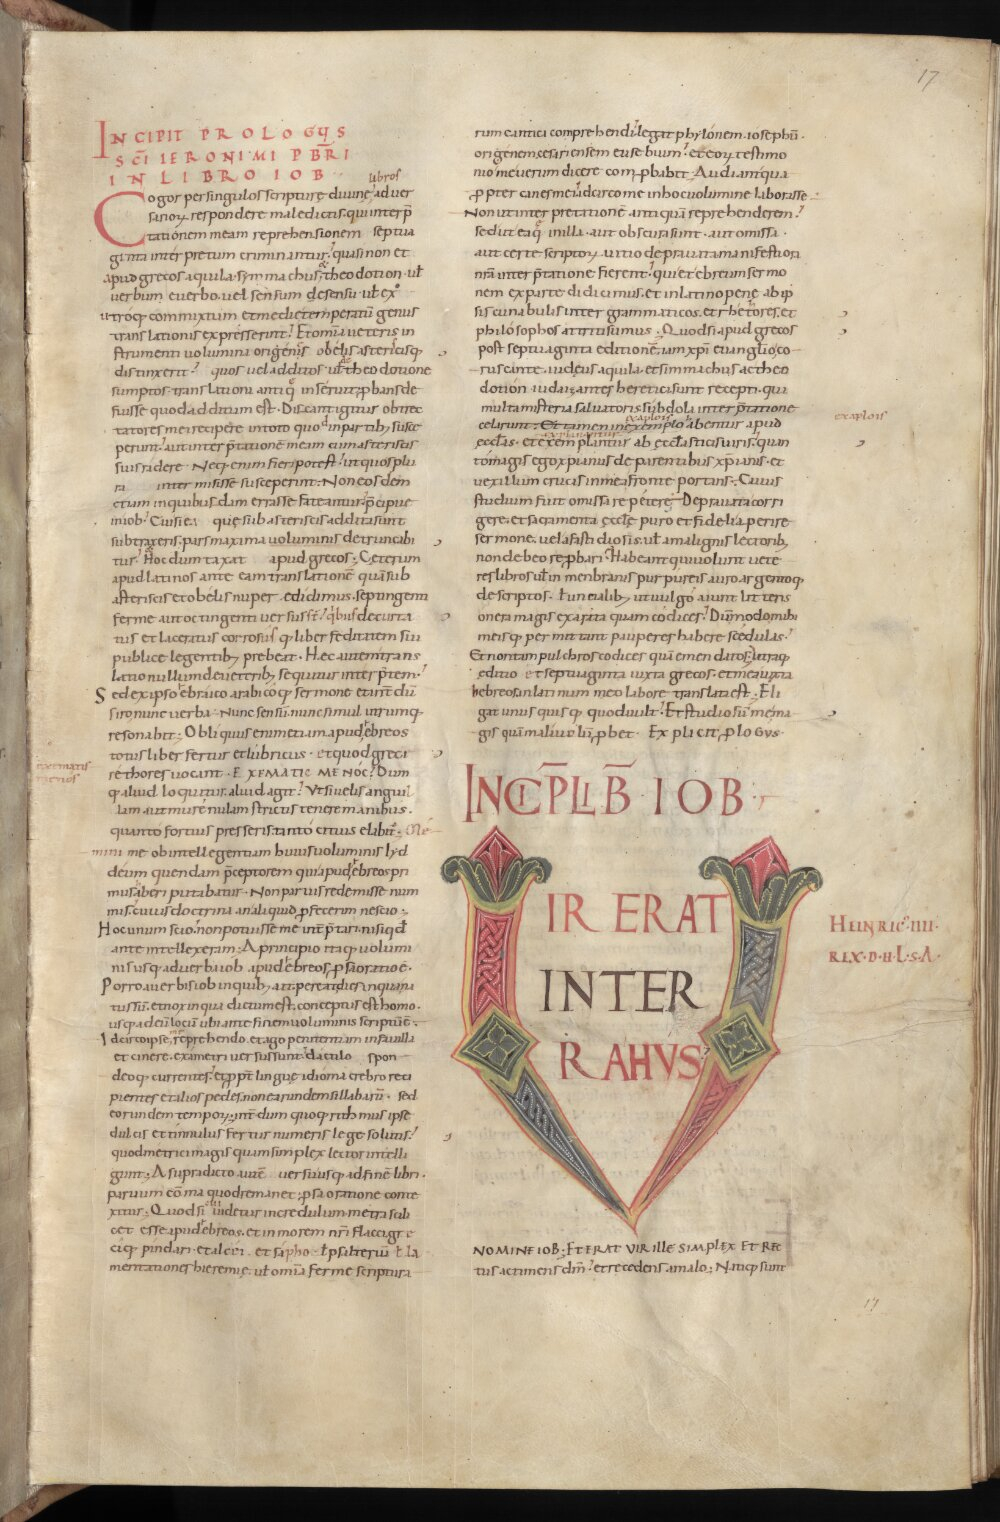 17
INCIPIT PROLOGUS
SCI IERONIMI PBRI
IN LIBRO IOB
libros
Cogor per singulos scripture diuine aduer
sarioꝝ respondere maledictis qui inter p̄
tationem meam reprehensionem septua
ginta interpretum criminantur quasi non et
apud grecos aquila symmachus theodotion uł
uerbum e uerbo uel sensum de sensu uł ex
utroq; commixtum et medie temperatum genus
translationis expresserint Et omīa ueteris in
strumenti uolumina origenis obelis astericisq;
distinxerit quos uel additos uł theodotione
sumptos translationi antiq; inseruit p̄bans de
fuisse quod additum est. Discant igitur obtrec
tatores mei recipere in toto quod in partib; susce
perunt aut inter p̄tationē meam cum asteriscis
suis radere Neq; enim fieri potest ut quos plu
ra intermisisse susceperint. Non eosdem
etiam in quibusdam errasse fateantur p̄cipue
in iob Cui si ea que sub asteriscis addita sunt
subtraxeris. pars maxima uoluminis detruncabi
tur Hoc dumtaxat apud grecos; Ceterum
apud latinos ante eam translationē quā sub
asteriscis et obelis nuper edidimus. septingenti
ferme aut octingenti uersus st̄ quibus decurta
tus et laceratus corrosusq; liber feditatem sui
publice legentib; prebeat. Hec autem trans
latio nullum de ueterib; sequitur interp̄tem.
Sed ex ipso ebraico arabicoq; sermone et int̄dū
siro nunc uerba Nunc sensū. nunc simul utrumq;
resonabit; Obliquus enim etiam apud ebreos
totus liber fertur et lubricus. et quod greci
exematis
menos
rethores uocant. EXEMATIC MENOC. Dum
q; aliud loquitur aliud agit. Ut si uelis anguil
lam aut murenulam strictis tenere manibus.
quanto fortius presseris tanto citius elabit̄.
mini me ob intellegentiam huius uoluminis lyd
deum quendam p̄ceptorem qui apud ebreos pri
mus haberi putabatur. Non paruis redemisse num
mis. cuius doctrina an aliquid p̄fecerim nescio
Hoc unum scio non potuisse me int̄p̄tari nisi qđ
ante intellexeram; A principio itaq; uolumi
nis usq; ad uerba iob apud ebreos p̄sa oratio ē.
Porro a uerbis iob in quib; ait. pereat dies in qua na
tus sū. et nox in qua dictum est. conceptus est homo.
usq; ad eū locū ubi ante finem uoluminis scriptū ē.
Idcirco ipse me reprehendo. et ago penitentiam in fauilla
et cinere. exametri uersus sunt dactilo spon
deoq; currentes. et p̄pt̄ lingue idioma crebro reci
pientes et alios pedes non earundem sillabarū. sed
eorundem temporꝝ. int̄dum quoq; rithmus ipse
dulcis et tinnulus fertur numeris lege solutis
quod metrici magis quam simplex lector intelli
gunt; A supradicto autē uersu usq; ad finē libri.
paruum coma quod remanet. p̄sa oratione conte
xitur; Quod si cui uidetur incredulum metra scili
cet esse apud ebreos. et in morem nr̄i flacci gre
ciq; pindari et alcei. et sapho. ł psalteriū ł la
mentationes hieremie. uł omīa ferme scriptura
rum cantica comprehendi. legat phylonem. iosephū.
origenem cesariensem eusebium et eoꝝ testimo
nio me uerum dicere comp̄babit. Audiant qua
p̄pter canes mei. idcirco me in hoc uolumine laborasse
Non ut interpretationē antiquā reprehenderem
sed ut ea q; in illa. aut obscura sunt. aut omissa.
aut certe scriptoꝝ uitio deprauata manifestiora
nr̄a interp̄tatione fierent qui et ebreum sermo
nem ex parte didicimus. et in latino pene ab ip
sis cunabulis inter grammaticos. et rhetores. et
philosophos attriti sumus; Quod si apud grecos
post septuaginta editionē. iam xpī euangłio co
ruscante. iudeus aquila. et simmachus ac theo
dotion iudaizantes heretici sunt recepti. qui
multa misteria saluatoris subdola interp̄tatione
exaplois
celarunt. Et tamen in exemplo habentur apud
exaplois
explanantur
ecclas. et exemplantur ab ecclasticis uiris. quan
to magis ego xpianus de parentibus xp̄ianis. et
uexillum crucis in mea fronte portans. Cuius
studium fuit omissa repetere. Deprauata corri
gere. et sacramenta eccle puro et fideli aperire
sermone. uel a fastidiosis. uł a malignis lectorib;
non debeo rep̄bari Habeant qui uolunt uete
res libros uł in menbranis purpureis auro argentoq;
descriptos. ł uncialib; ut uulgo aiunt litteris
onera magis exarata quam codices Dūmodo mihi
meisq; permittant pauperes habere scedulas.
Et non tam pulchros codices quā emendatos. utraq;
editio et septuaginta iuxta grecos. et mea iuxta
hebreos in latinum meo labore translata est. Eli
gat unusquisq; quod uult Et studiosū me ma
gis quā maliuolū p̄bet. Explicit p̄logus
INCIP̄ LIB̄ IOB
VIR ERAT
INTER
RA HUS
HEINRIC. IIII.
REX. D. H. L. S. A.
NOMINE IOB; ET ERAT VIR ILLE SIMPLEX ET REC
tus ac timens dm̄ et recedens a malo; Natiq; sunt
17